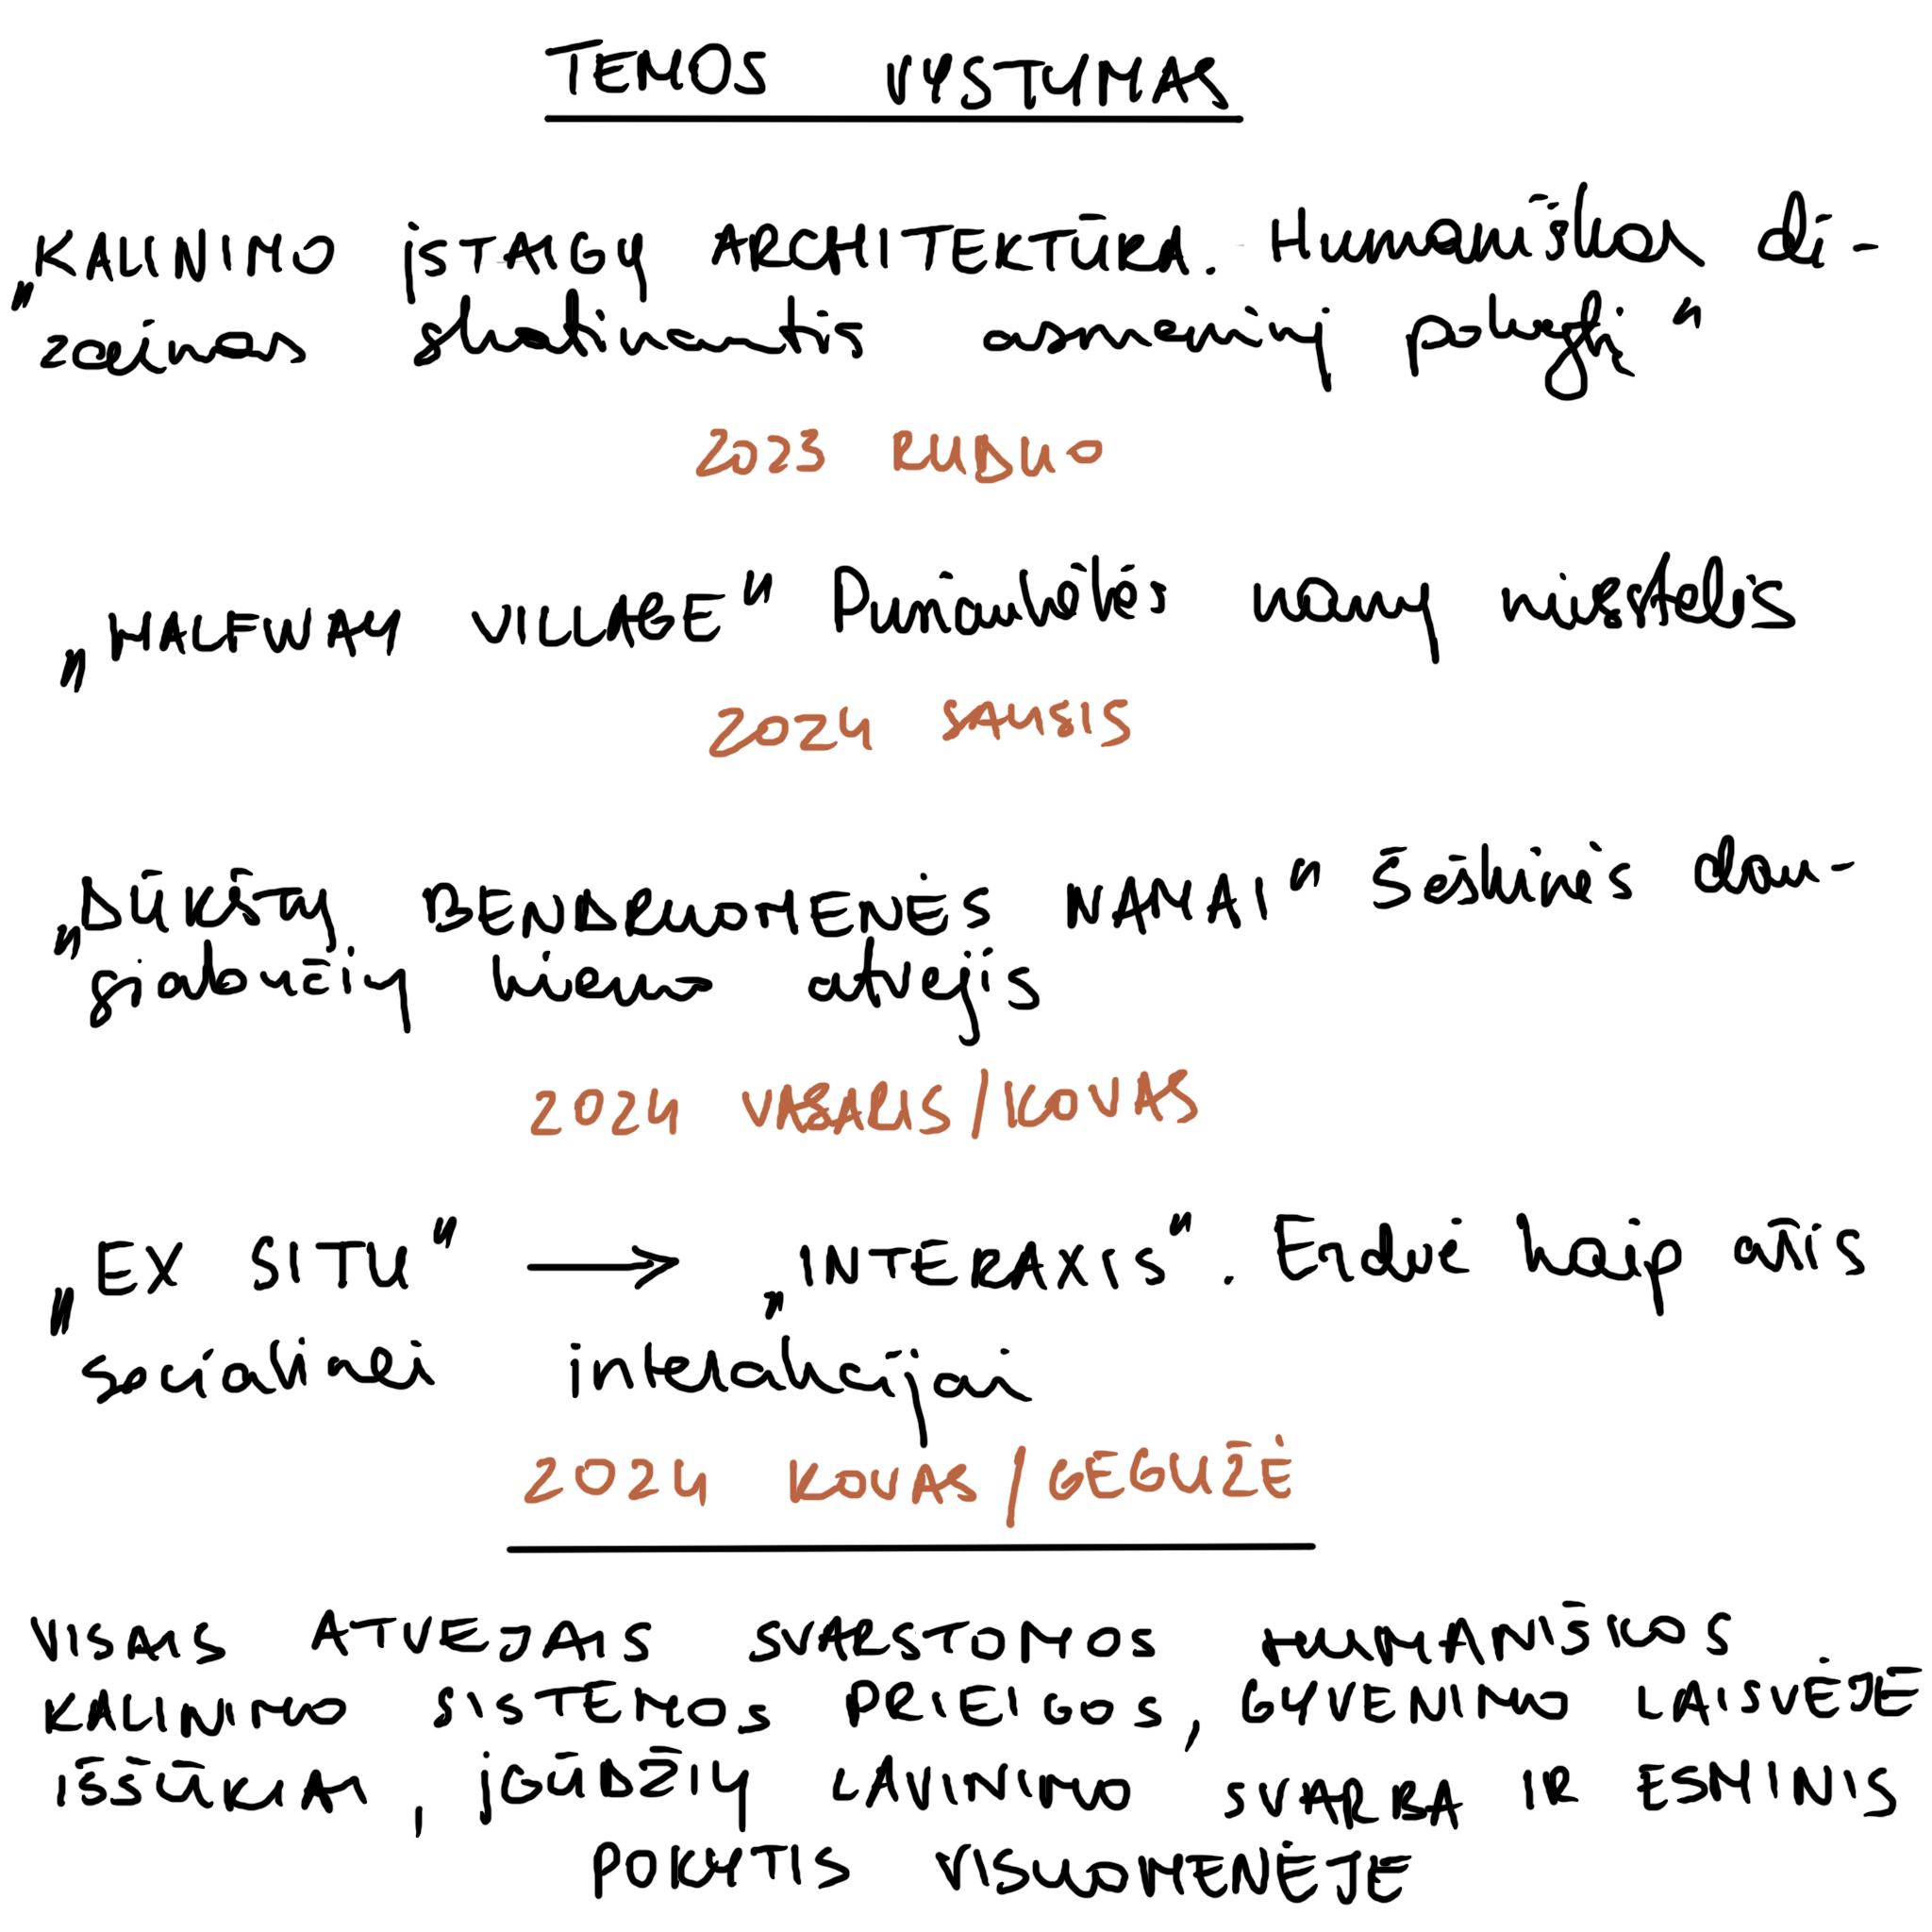 TEMOS VYSTYMAS
„KALINIMO ĮSTAIGŲ ARCHITEKTŪRA. Humaniškas di-
zainas skatinantis asmeninį pokytį“
2023 RUDUO
„HALFWAY VILLAGE“ Pusiaukelės namų miestelis
2024 SAUSIS
„DŪKŠTŲ BENDRUOMENĖS NAMAI“ Šeškinės dau-
giabučių kiemo atvejis
2024 VASARIS/KOVAS
„EX SITU“ → „INTERAXIS“. Erdvė kaip ašis
socialinei interakcijai
2024 KOVAS/GEGUŽĖ
VISAIS ATVEJAIS SVARSTOMOS HUMANIŠKOS
KALINIMO SISTEMOS PRIEIGOS, GYVENIMO LAISVĖJE
IŠŠŪKIAI, ĮGŪDŽIŲ LAVINIMO SVARBA IR ESMINIS
POKYTIS VISUOMENĖJE